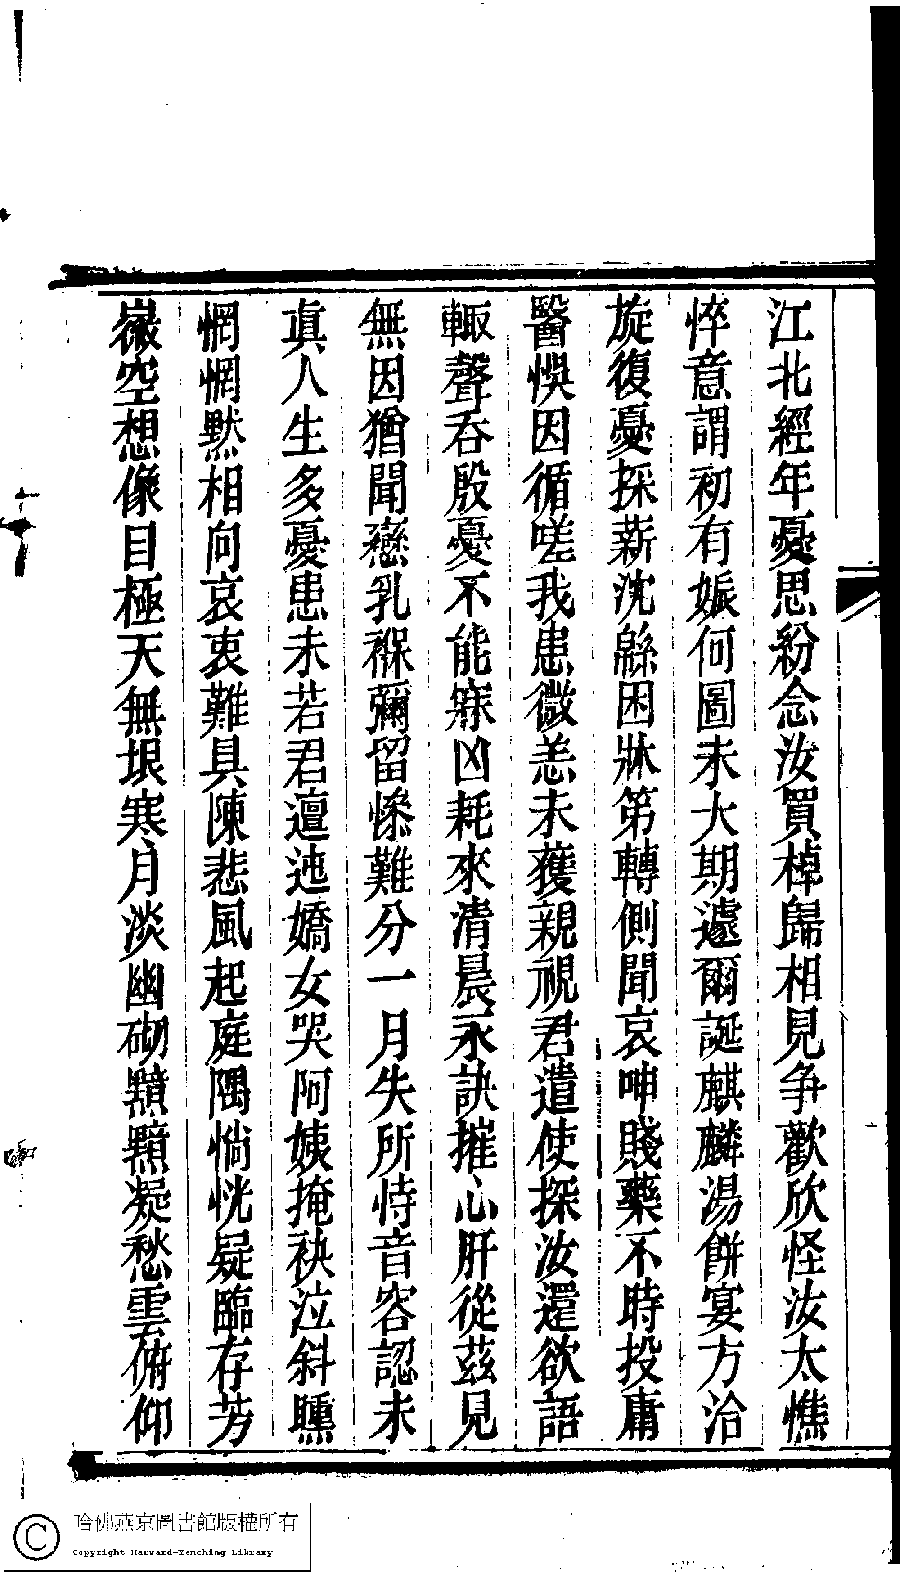 江北經年憂思紛念汝買棹歸相見争歡欣怪汝太憔
悴意謂初有娠何圖未大期遽爾誕麒麟湯餅宴方洽
旋復憂採薪沈緜困牀笫轉側聞哀呻賤藥不時投庸
醫悞因循嗟我患微恙未獲親視君遣使探汝還欲語
輙聲吞殷憂不能寐凶耗來清晨永訣摧心肝從茲見
無因猶聞戀乳褓彌留慘難分一月失所恃音容認未
真人生多憂患未若君邅迍嬌女哭阿姨掩袂泣斜曛
惘惘黙相向哀衷難具陳悲風起庭隅惝恍疑臨存芳
徽空想像目極天無垠寒月淡幽砌黯黯凝愁雲俯仰
哈佛燕京圖書館版權所有
Copyright Harvard-Yenching Library